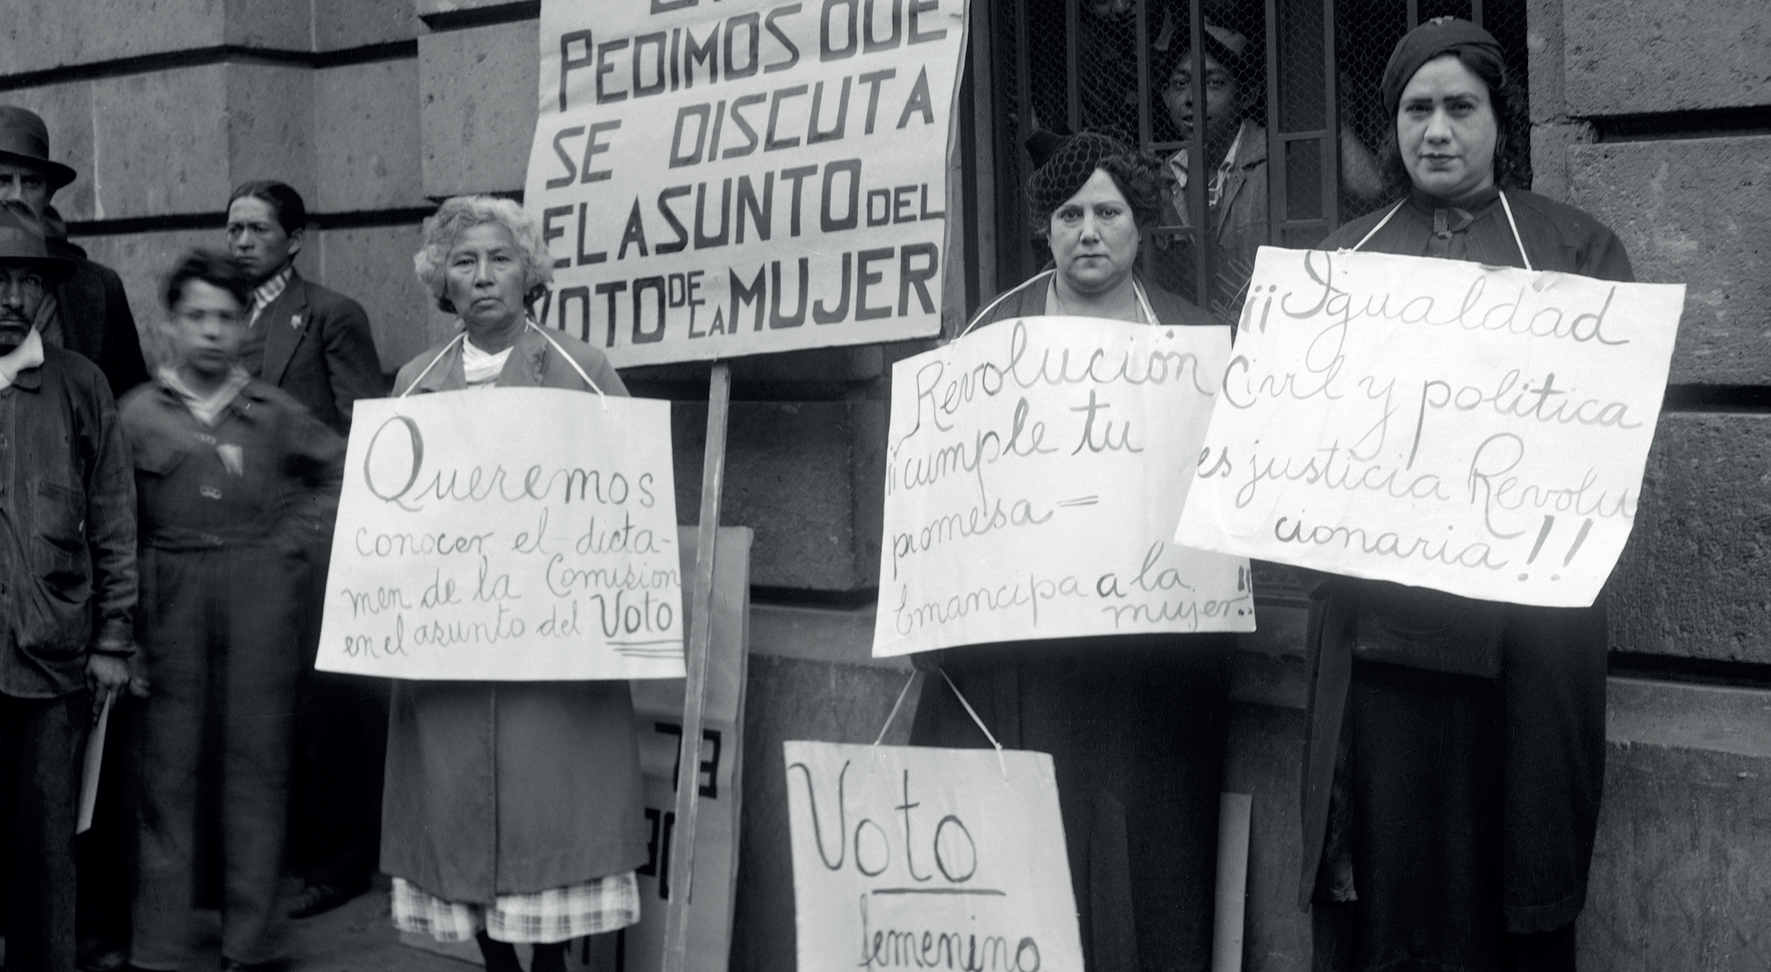 PEDIMOS QUE
SE DISCUTA
EL ASUNTO DEL
VOTO DE LA MUJER
Queremos
conocer el dicta-
men de la Comision
en el asunto del Voto
Revolución
¡¡cumple tu
promesa=
Emancipa a la
mujer!!
¡¡Igualdad
Civil y política
es justicia Revolu
cionaria!!
Voto
femenino
73